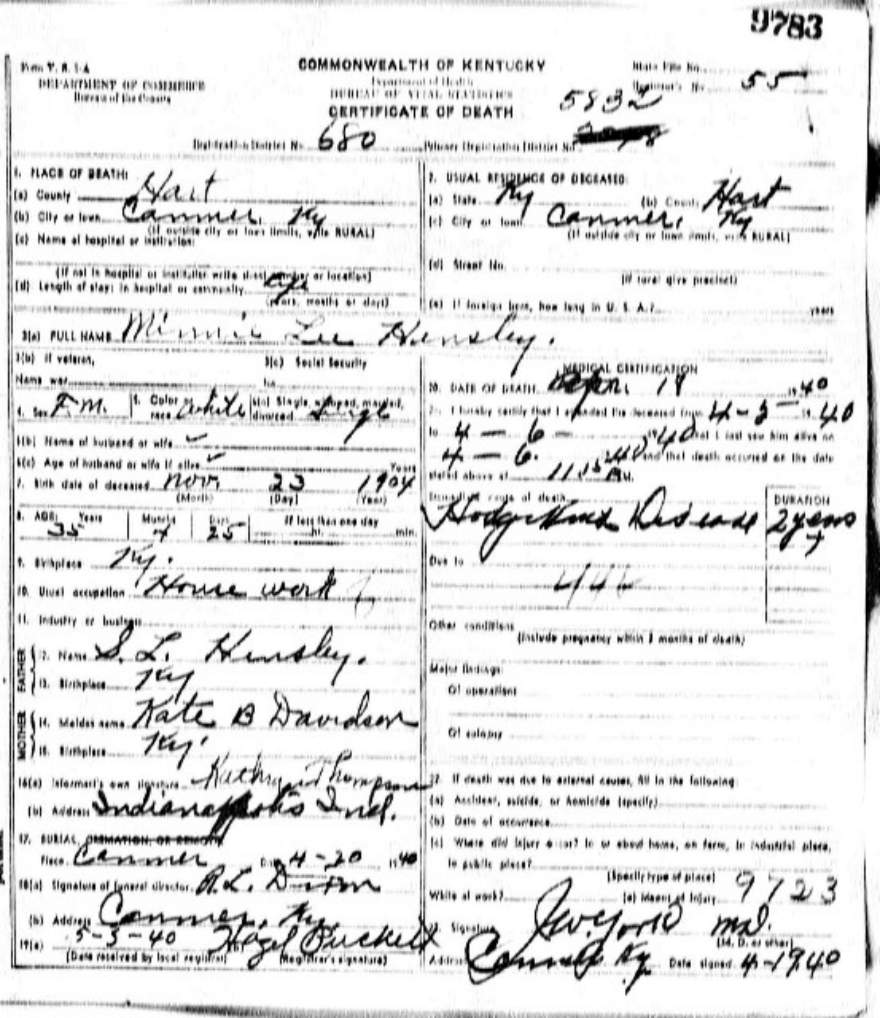 9783
Form V. S. 1-A
DEPARTMENT OF COMMERCE
Bureau of the Census
COMMONWEALTH OF KENTUCKY
Department of Health
BUREAU OF VITAL STATISTICS
CERTIFICATE OF DEATH
State File No.
Registrar's No. 55
5832
Registration District No. 680
Primary Registration District No.
1. PLACE OF DEATH:
(a) County Hart
(b) City or town Canmer, Ky
(If outside city or town limits, write RURAL)
(c) Name of hospital or institution:
(If not in hospital or institution write street number or location)
(d) Length of stay: In hospital or community Life
(years, months or days)
2. USUAL RESIDENCE OF DECEASED:
(a) State Ky (b) County Hart
(c) City or town Canmer, Ky
(If outside city or town limits, write RURAL)
(d) Street No.
(If rural give precinct)
(e) If foreign born, how long in U. S. A.? years
3(a) FULL NAME Minnie Lee Hensley.
3(b) If veteran, 3(c) Social Security
Name war No.
4. Sex F.M. 5. Color or race White 6(a) Single, widowed, married, divorced Single
6(b) Name of husband or wife
6(c) Age of husband or wife if alive Years
7. Birth date of deceased Nov. 23 1904
(Month) (Day) (Year)
8. AGE: Years Months Days If less than one day
35 4 25 hr. min.
9. Birthplace Ky.
10. Usual occupation House work
11. Industry or business
FATHER
12. Name S. L. Hensley.
13. Birthplace Ky
MOTHER
14. Maiden name Kate B Davidson
15. Birthplace Ky.
16(a) Informant's own signature Kathryn Thompson
(b) Address Indianapolis Ind.
17. BURIAL, CREMATION, OR REMOVAL
Place Canmer Date 4-20 1940
18(a) Signature of funeral director R. L.
(b) Address Canmer, Ky.
19(a) 5-3-40 Hazel Puckett
(Date received by local registrar) (Registrar's signature)
MEDICAL CERTIFICATION
20. DATE OF DEATH Apr. 19 1940
21. I hereby certify that I attended the deceased from 4-3- 1940
to 4-6- 1940 that I last saw him alive on
4-6. 40, and that death occurred on the date
stated above at 11:15 M.
Immediate cause of death
Hodgkins Disease
DURATION
2 years
Due to
Other conditions
(Include pregnancy within 3 months of death)
Major findings:
Of operations
Of autopsy
22. If death was due to external causes, fill in the following:
(a) Accident, suicide, or homicide (specify)
(b) Date of occurrence
(c) Where did injury occur? In or about home, on farm, in industrial place,
in public place?
(Specify type of place)
While at work? (e) Means of injury 9723
Signature md.
(M. D. or other)
Address Canmer Ky. Date signed 4-19-40